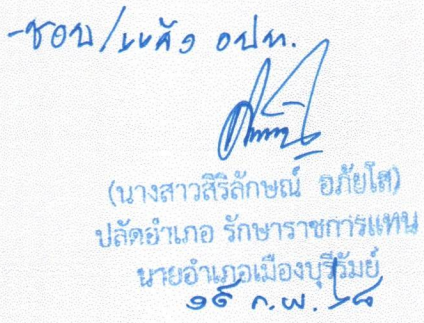 -ชอบ/แจ้ง อปท.
(นางสาวสิริลักษณ์ อภัยโส)
ปลัดอำเภอ รักษาราชการแทน
นายอำเภอเมืองบุรีรัมย์
๑๙ ก.พ. ๖๘